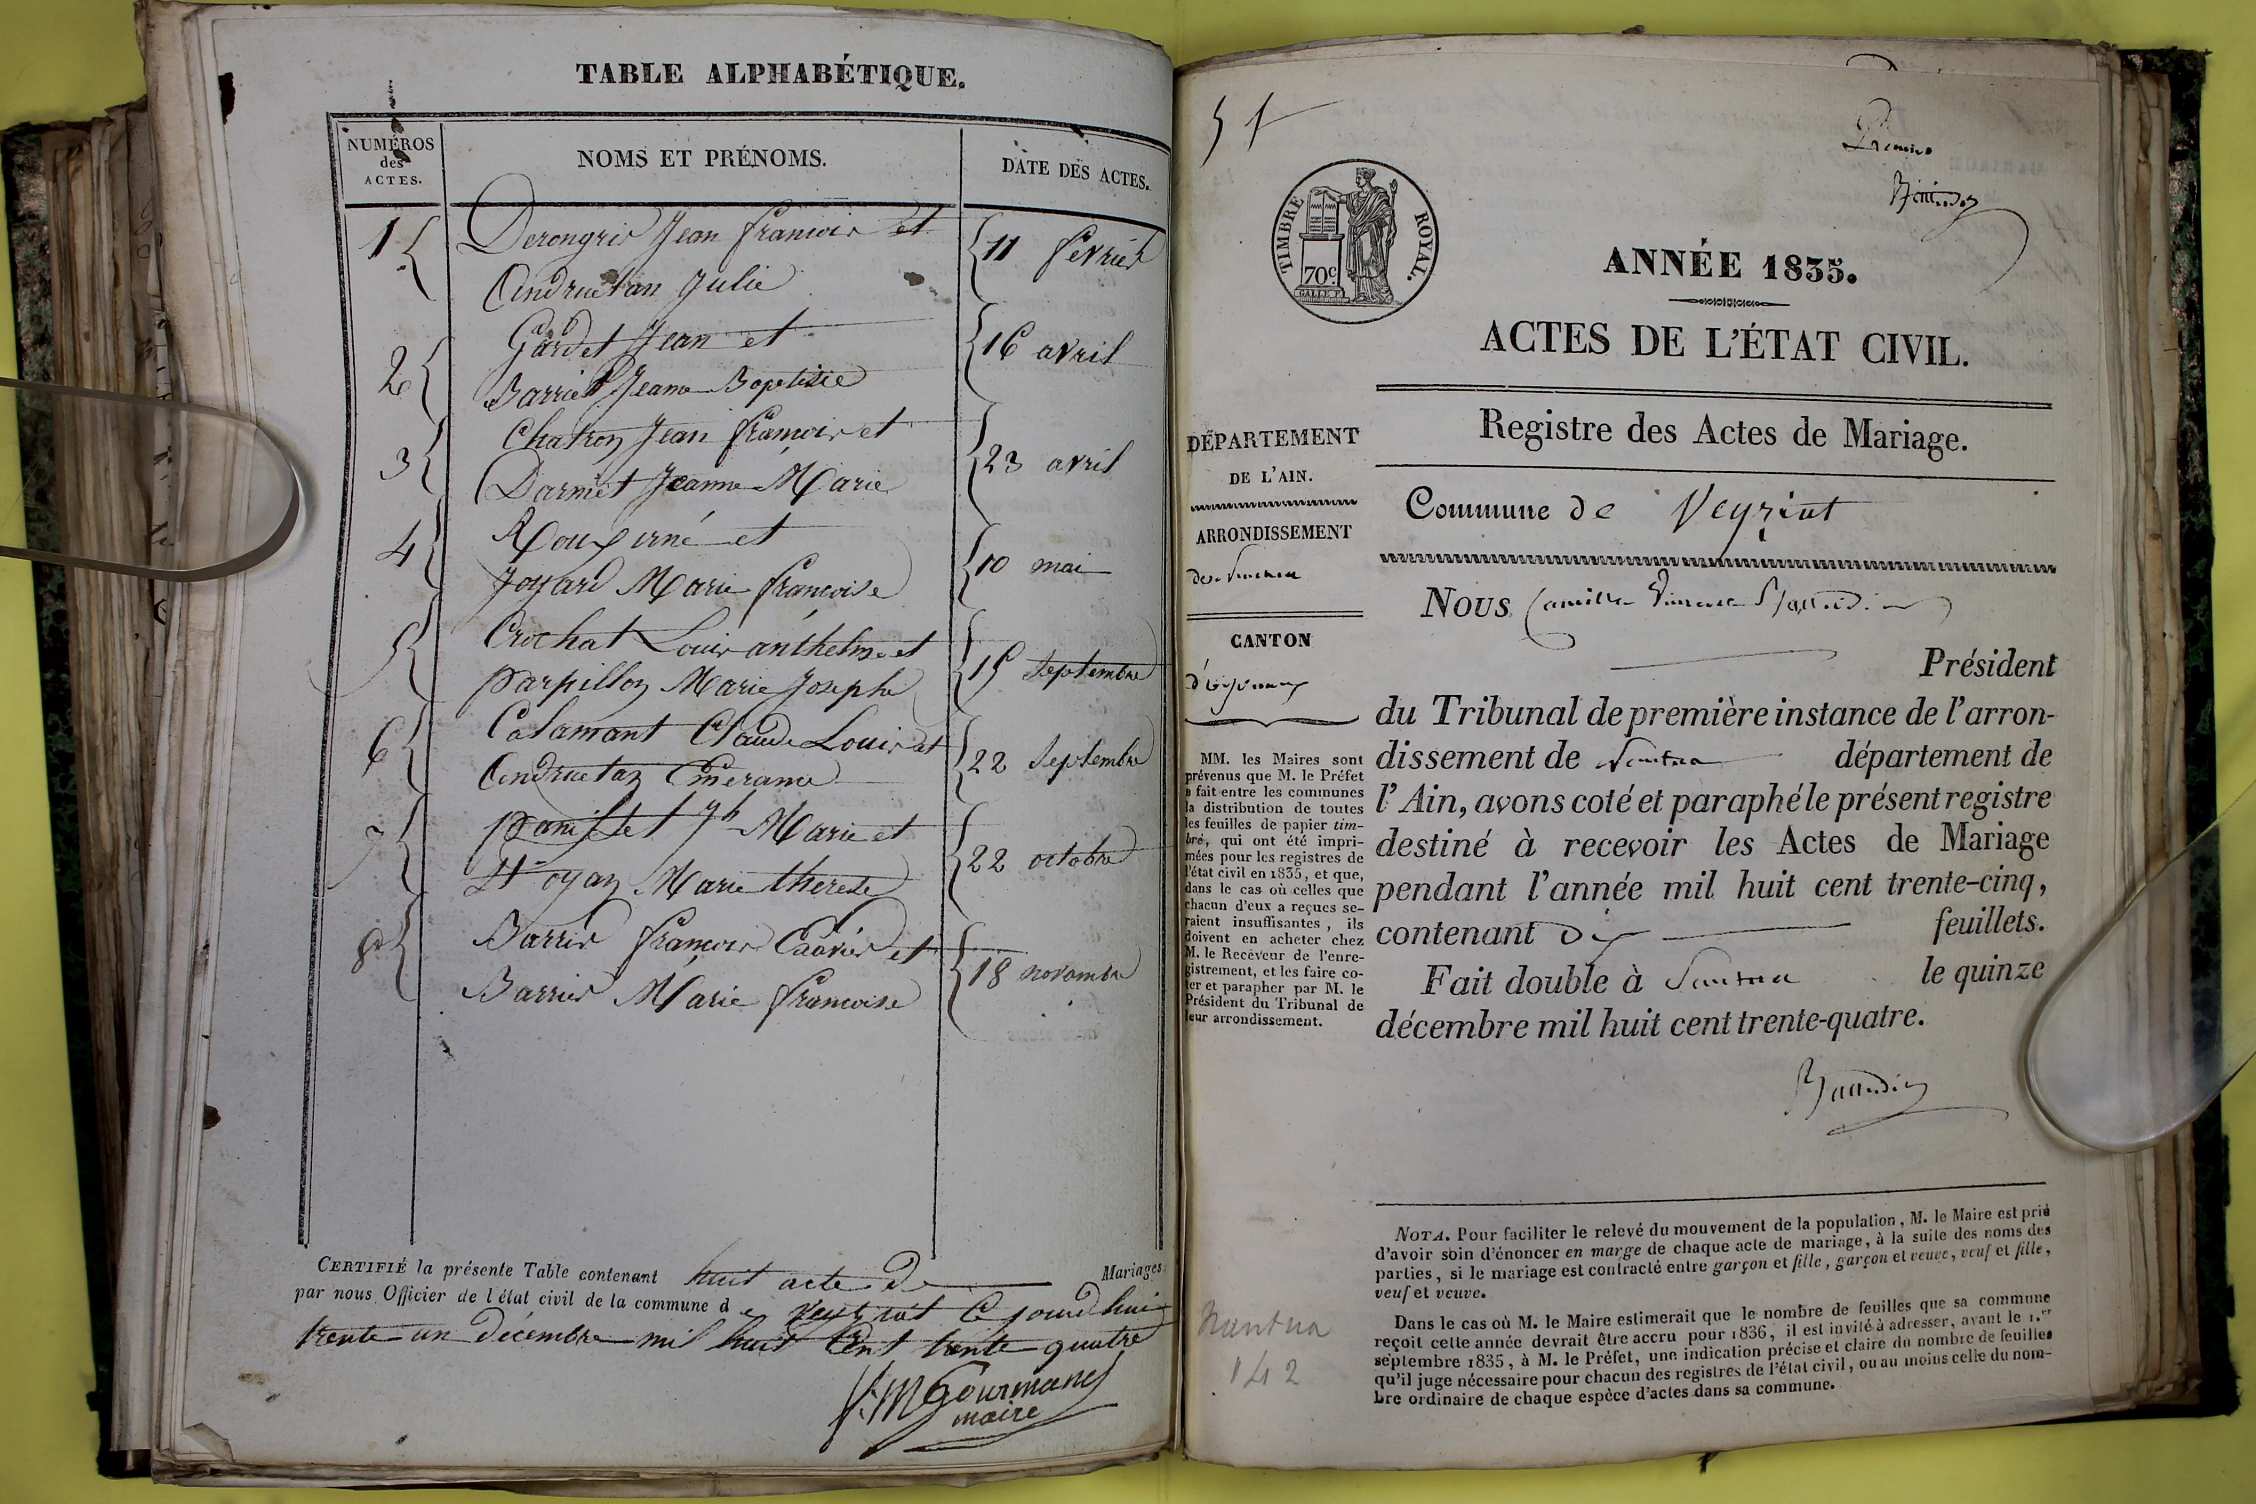 TABLE ALPHABÉTIQUE.
NUMÉROS
des
ACTES.
NOMS ET PRÉNOMS.
DATE DES ACTES.
1
Derongris Jean francois et
11 fevrier
Andruetan Julie
2
Gardet Jean et
16 avril
Barrier Jeanne Baptiste
3
Chatron Jean francois et
23 avril
Darmet Jeanne Marie
4
et
10 mai
Joyard Marie francoise
5
Crochat Louis anthelme et
15 septembre
parpillon Marie Josephe
6
Calamant Claude Louis et
22 septembre
Andruetan
7
Jh Marie et
22 octobre
Marie therese
8
Barrier francois Xavier et
18 novembre
Barrier Marie francoise
CERTIFIÉ la présente Table contenant huit acte de Mariages
par nous Officier de l'état civil de la commune de veyriat Ce jourd'hui
trente-un décembre mil huit Cent trente quatre
Gourmand
maire
51
Premier
TIMBRE ROYAL.
70c
ANNÉE 1835.
ACTES DE L'ÉTAT CIVIL.
Registre des Actes de Mariage.
DÉPARTEMENT
DE L'AIN.
ARRONDISSEMENT
de Nantua
CANTON
d'Oyonnax
Commune de Veyriat
Nous Camille
Président
du Tribunal de première instance de l'arron-
dissement de Nantua département de
l'Ain, avons coté et paraphé le présent registre
destiné à recevoir les Actes de Mariage
pendant l'année mil huit cent trente-cinq,
contenant Dix feuillets.
Fait double à Nantua le quinze
décembre mil huit cent trente-quatre.
MM. les Maires sont
prévenus que M. le Préfet
a fait entre les communes
la distribution de toutes
les feuilles de papier tim-
bré, qui ont été impri-
mées pour les registres de
l'état civil en 1835, et que,
dans le cas où celles que
chacun d'eux a reçues se-
raient insuffisantes, ils
doivent en acheter chez
M. le Receveur de l'enre-
gistrement, et les faire co-
ter et parapher par M. le
Président du Tribunal de
leur arrondissement.
NOTA. Pour faciliter le relevé du mouvement de la population, M. le Maire est prié
d'avoir soin d'énoncer en marge de chaque acte de mariage, à la suite des noms des
parties, si le mariage est contracté entre garçon et fille, garçon et veuve, veuf et fille,
veuf et veuve.
Dans le cas où M. le Maire estimerait que le nombre de feuilles que sa commune
reçoit cette année devrait être accru pour 1836, il est invité à adresser, avant le 1.er
septembre 1835, à M. le Préfet, une indication précise et claire du nombre de feuilles
qu'il juge nécessaire pour chacun des registres de l'état civil, ou au moins celle du nom-
bre ordinaire de chaque espèce d'actes dans sa commune.
Nantua
142